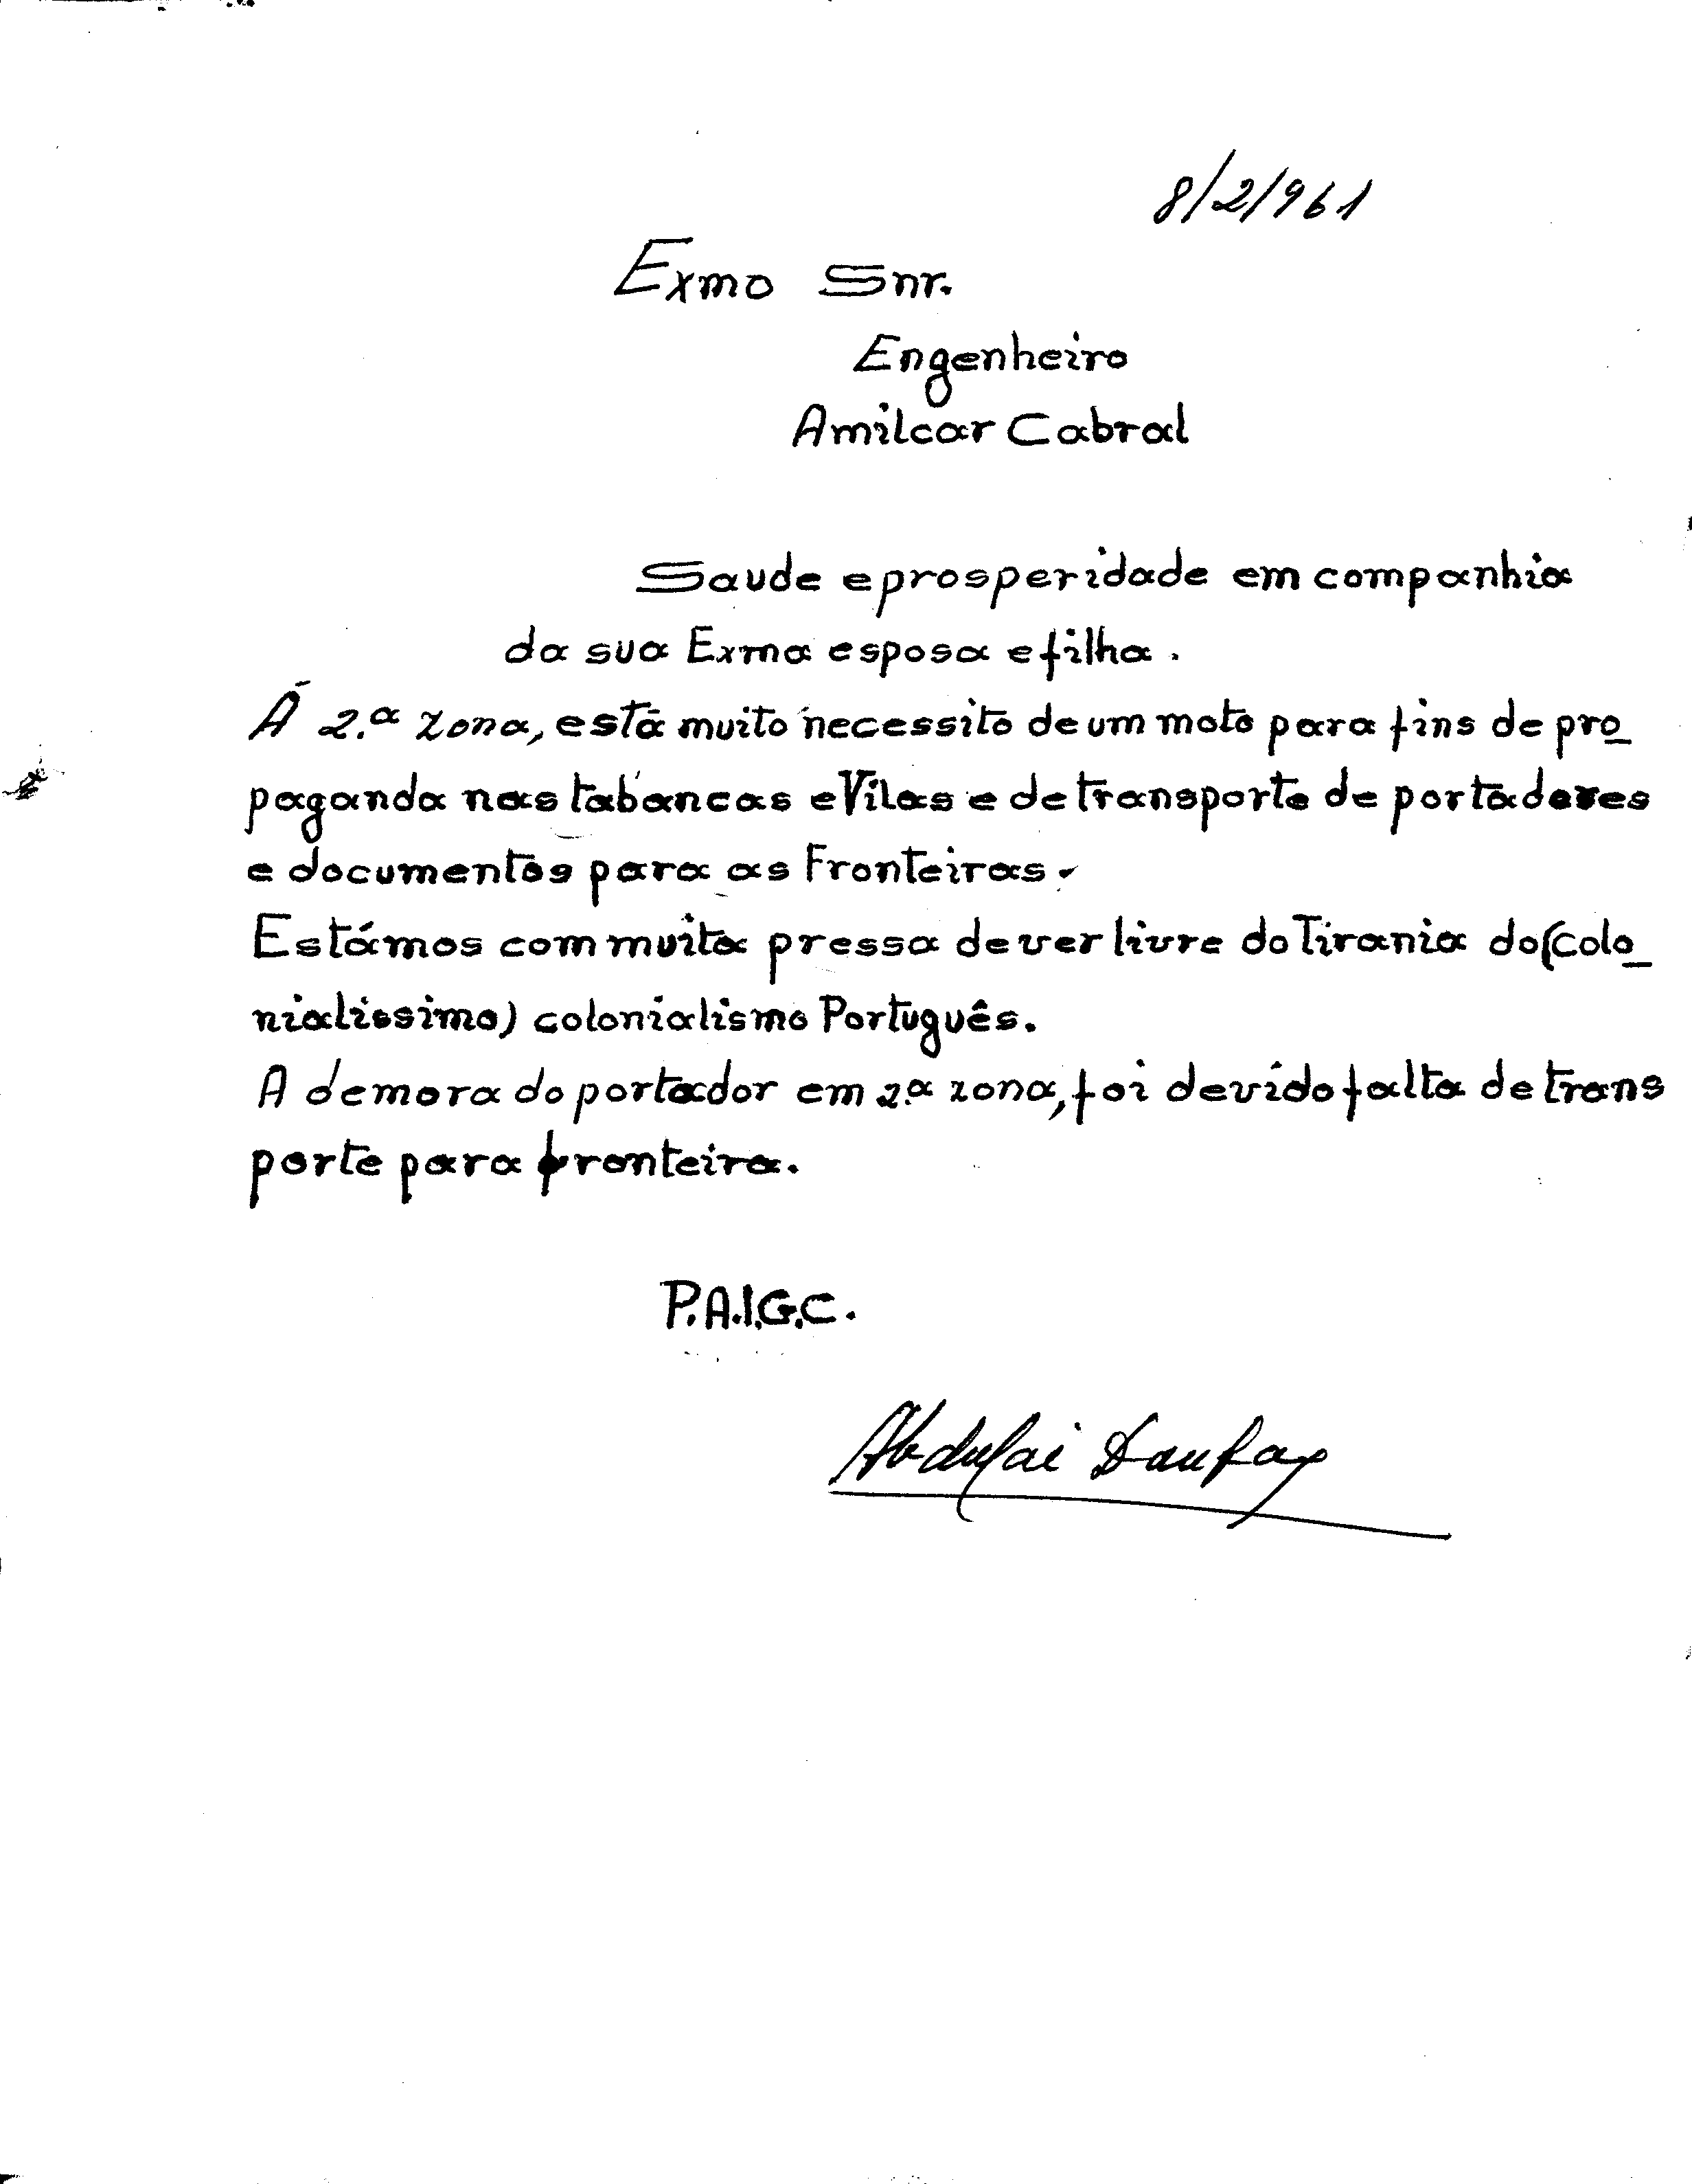 8/2/961
Exmo Snr.
Engenheiro
Amilcar Cabral
Saude e prosperidade em companhia
da sua Exma esposa e filha.
Á 2.ª zona, está muito necessito de um moto para fins de pro_
paganda nas tabancas e Vilas e de transporte de portadores
e documentos para as Fronteiras.
Estámos com muita pressa de ver livre do Tirania do (colo_
nialissimo) colonialismo Português.
A demora do portador em 2.ª zona, foi devido falta de trans
porte para fronteira.
P.A.I.G.C.
Abdulai